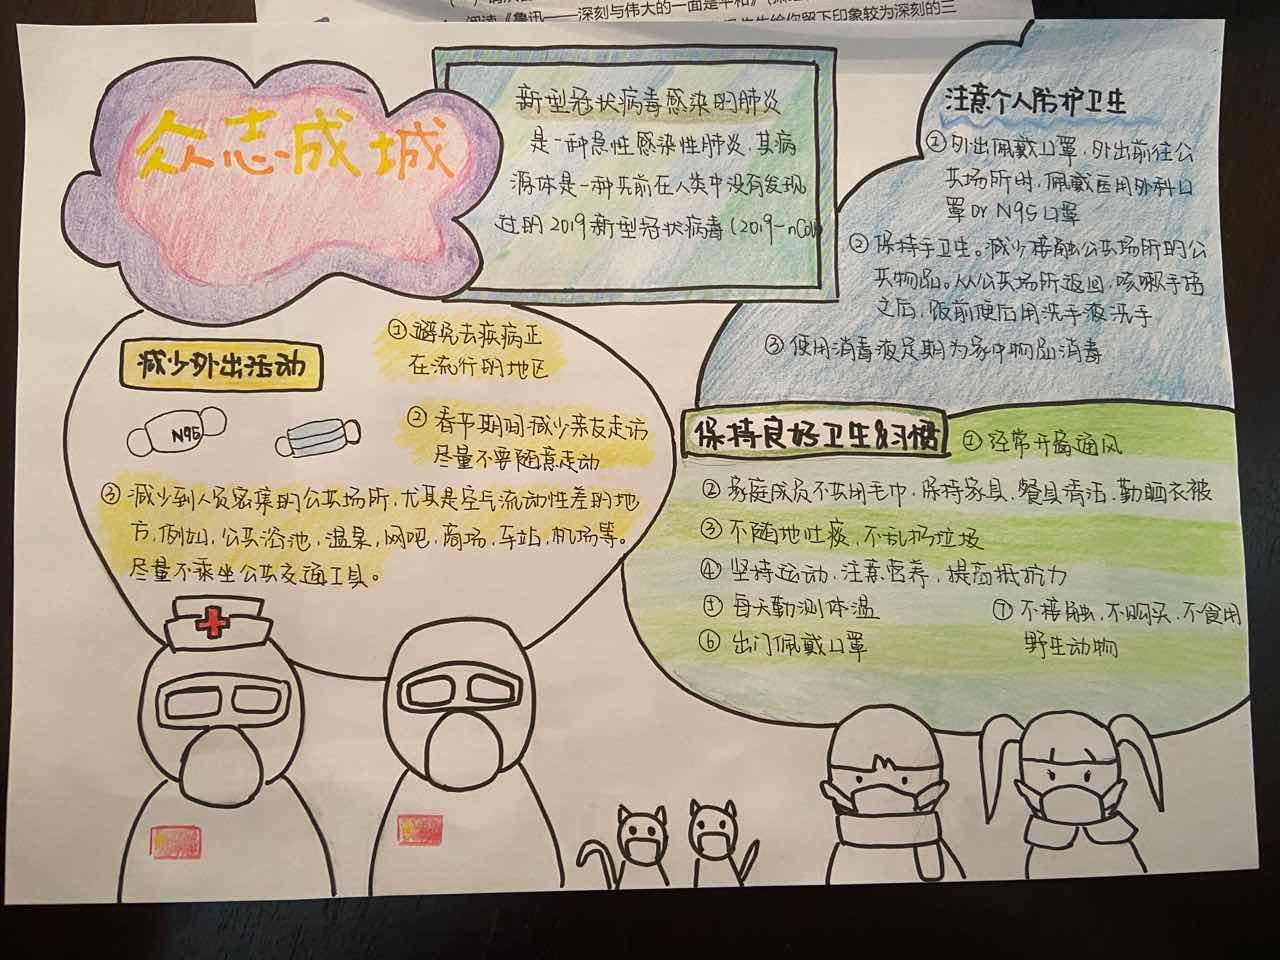 阅读《鲁迅——深刻与伟大的一面是平和》
给你留下印象较为深刻的三
众志成城
新型冠状病毒感染的肺炎
是一种急性感染性肺炎,其病
源体是一种先前在人类中没有发现
过的2019新型冠状病毒(2019-nCoV)
注意个人防护卫生
①外出佩戴口罩,外出前往公
共场所时,佩戴医用外科口
罩or N95口罩
②保持手卫生。减少接触公共场所的公
共物品。从公共场所返回,咳嗽手捂
之后,饭前便后用洗手液洗手
③使用消毒液定期为家中物品消毒
减少外出活动
N95
①避免去疾病正
在流行的地区
②春节期间减少亲友走访
尽量不要随意走动
③减少到人员密集的公共场所,尤其是空气流动性差的地
方,例如,公共浴池,温泉,网吧,商场,车站,机场等。
尽量不乘坐公共交通工具。
保持良好卫生&习惯
①经常开窗通风
②家庭成员不共用毛巾,保持家具、餐具清洁,勤晒衣被
③不随地吐痰,不乱扔垃圾
④坚持运动,注意营养,提高抵抗力
⑤每天勤测体温
⑥出门佩戴口罩
⑦不接触,不购买,不食用
野生动物